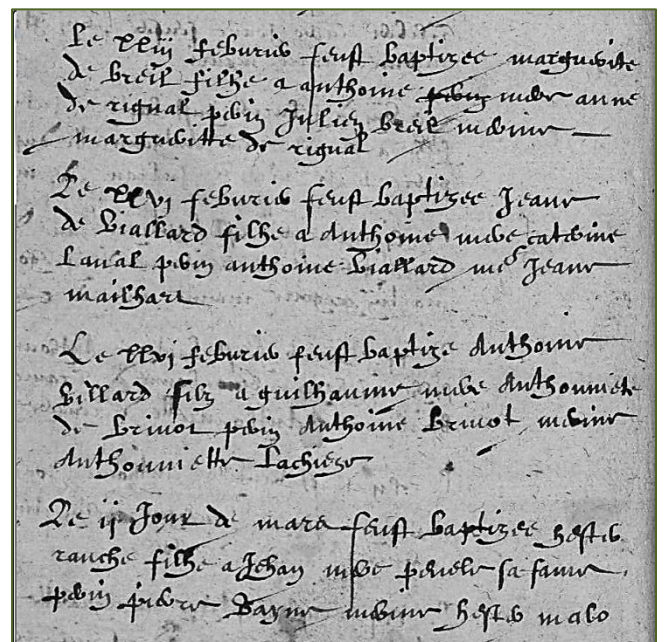 Le xxiij feburier feust baptizee marguerite
de breil filhe a anthoine mere anne
de rignal perin Julien breil merine
margueritte de rignal
Le xxvj feburier feust baptizee Jeane
de Viallard filhe a Anthoine mere caterine
Laval perin anthoine Viallard Jeane
mailhart
Le xxvj feburier feust baptize Anthoine
Villard filz a guilhaume mere Anthoniete
de brivot perin Anthoine brivot merine
Anthonniette Lachieze
Le ij Jour de mars feust baptizee
ranche filhe a Jehan mere sa fame
perin pierre merine malo